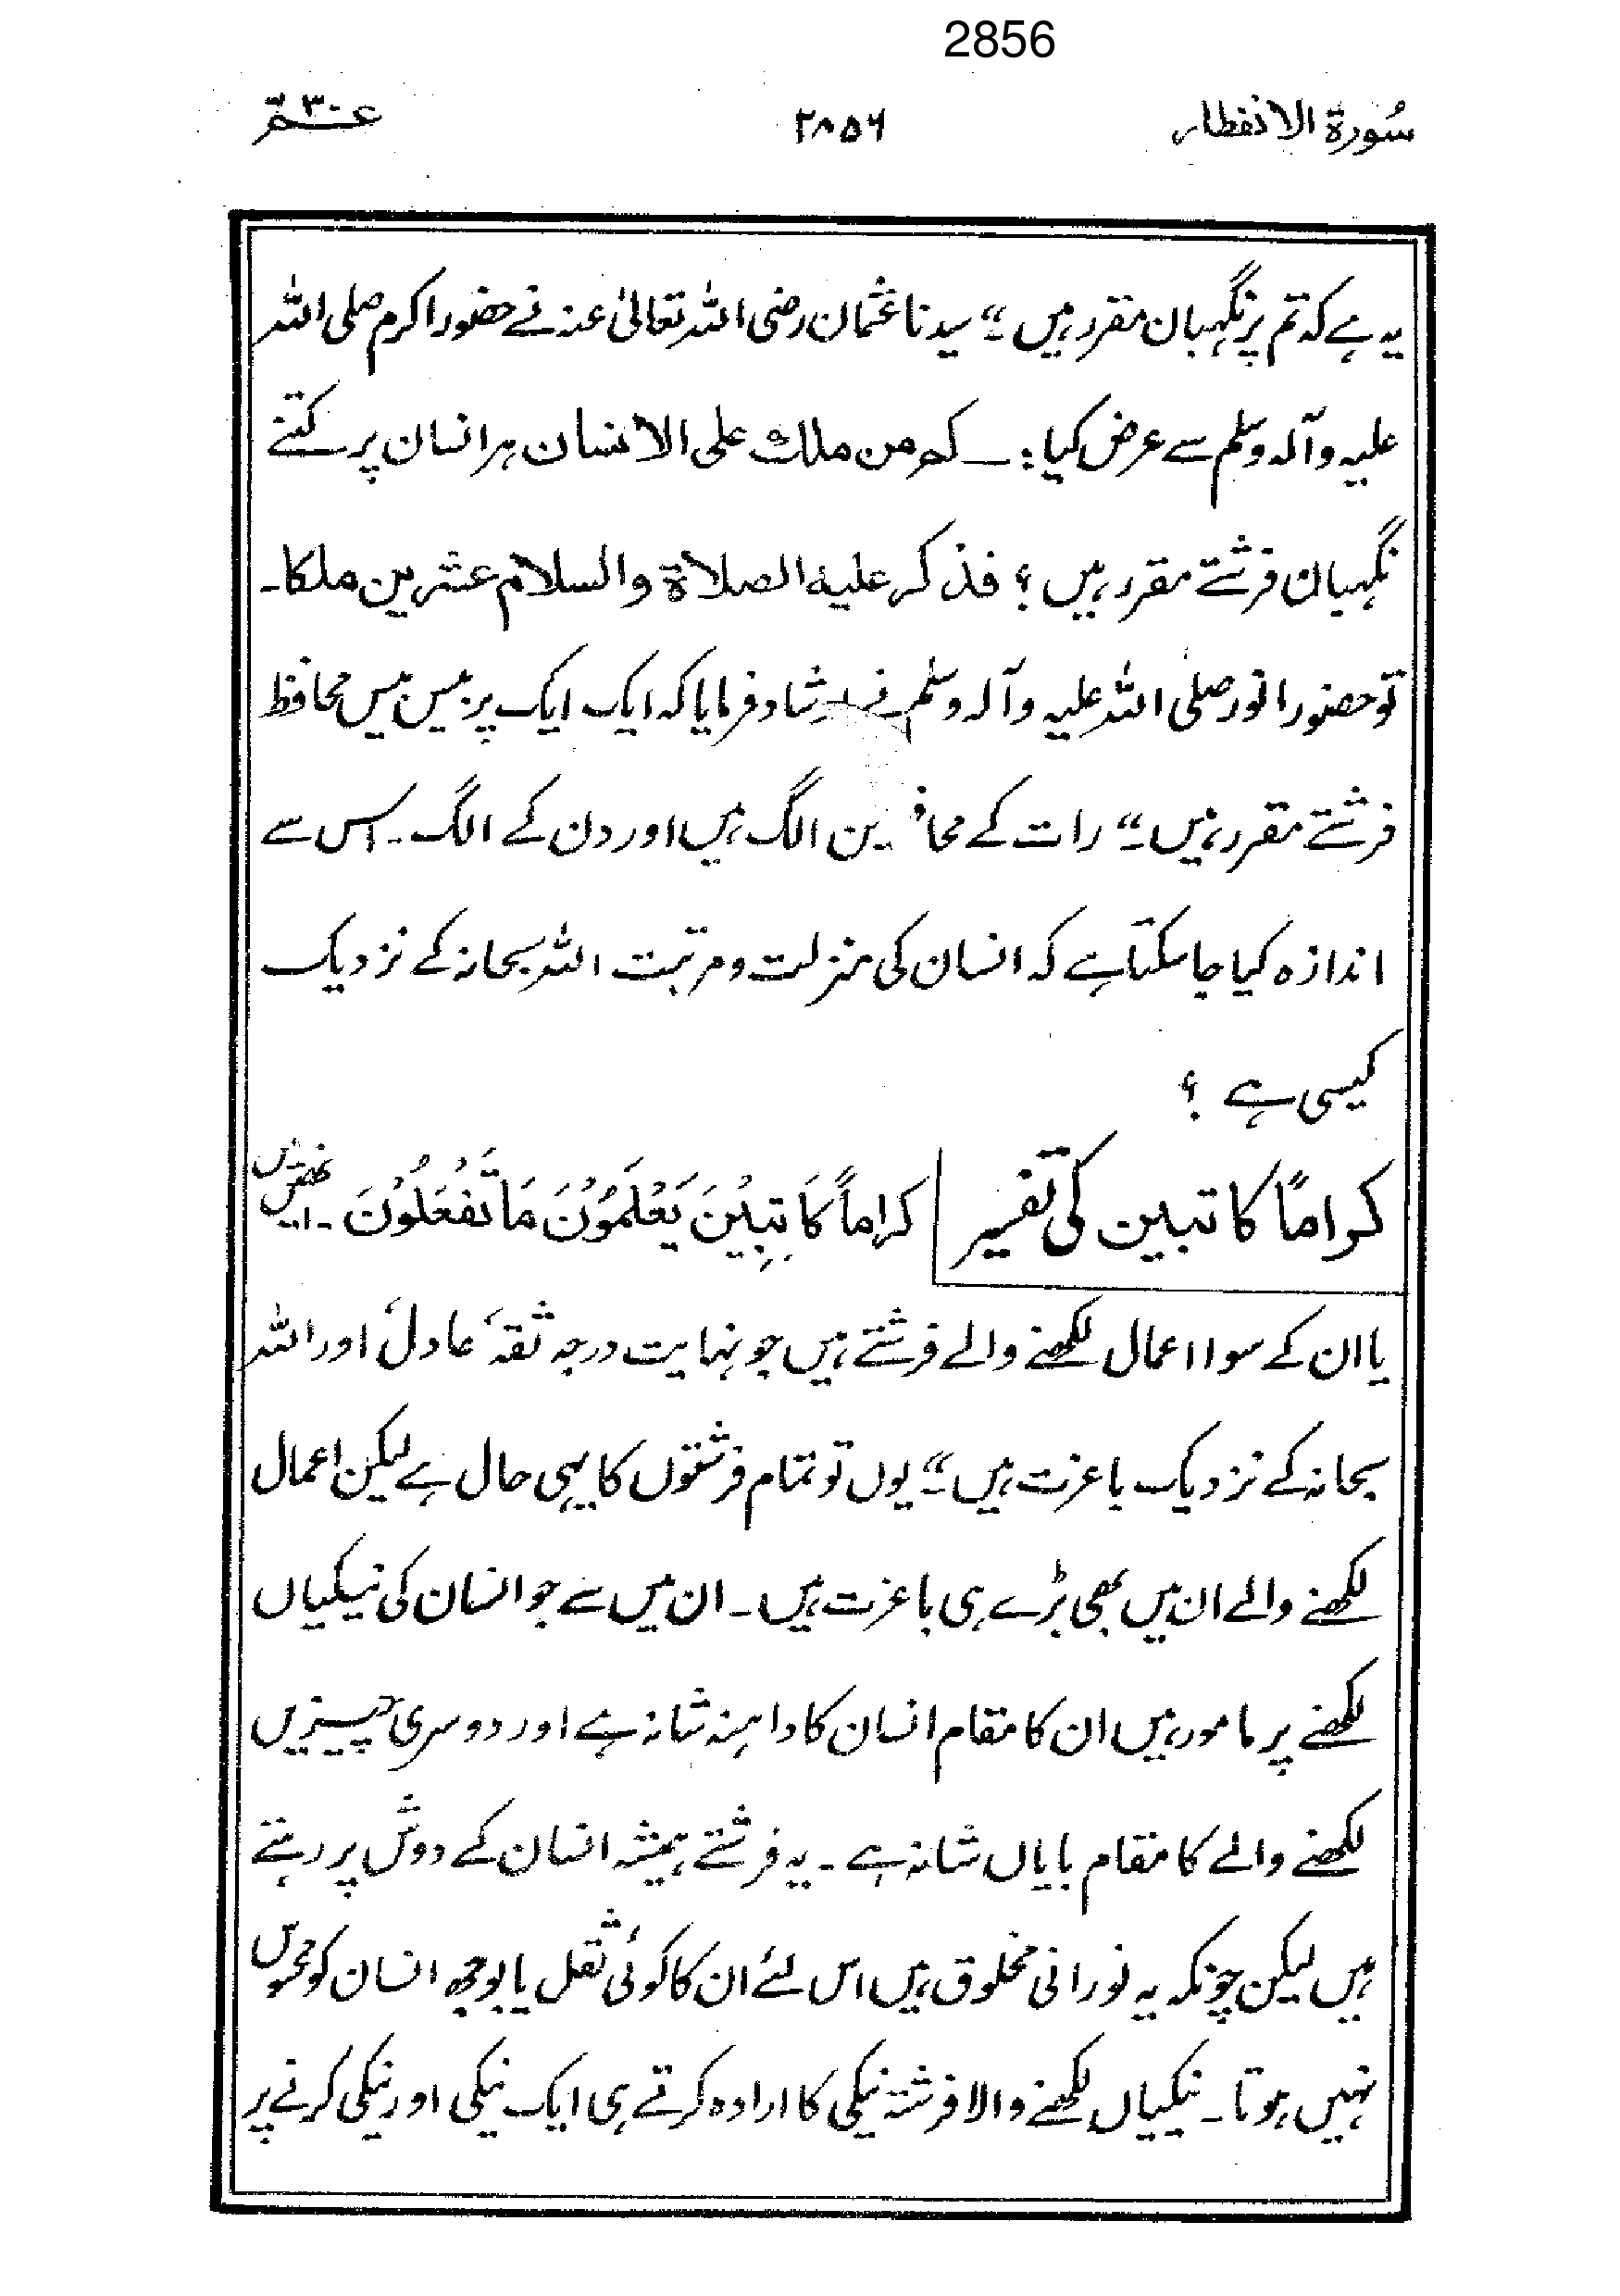 2856
سُورۃ الانفطار ۲۸۵۶ عـــمّ ۳۰
یہ ہے کہ تم پر نگہبان مقرر ہیں ۔“ سیدنا عثمان رضی اللہ تعالیٰ عنہ نے حضور اکرم صلی اللہ
علیہ وآلہ وسلم سے عرض کیا :۔ کم من ملك علی الانسان ہر انسان پر کتنے
نگہبان فرشتے مقرر ہیں ؟ فذکر علیہ الصلاۃ والسلام عشرین ملکا ۔
تو حضور انور صلی اللہ علیہ وآلہ وسلم نے ارشاد فرمایا کہ ایک ایک پر بیس بیس محافظ
فرشتے مقرر ہیں ۔“ رات کے محافظین الگ ہیں اور دن کے الگ ۔ اس سے
اندازہ کیا جا سکتا ہے کہ انسان کی منزلت و مرتبت اللہ سبحانہ کے نزدیک
کیسی ہے ؟
کراماً کاتبین کی تفسیر کِراماً کَاتِبِیْنَ یَعْلَمُوْنَ مَا تَفْعَلُوْنَ ۔
یا ان کے سوا اعمال لکھنے والے فرشتے ہیں جو نہایت درجہ ثقہ، عادل، اور اللہ
سبحانہ کے نزدیک باعزت ہیں ۔“ یوں تو تمام فرشتوں کا یہی حال ہے لیکن اعمال
لکھنے والے ان میں بھی بڑے ہی باعزت ہیں ۔ ان میں سے جو انسان کی نیکیاں
لکھنے پر مامور ہیں ان کا مقام انسان کا داہنہ شانہ ہے اور دوسری چیزیں
لکھنے والے کا مقام بایاں شانہ ہے ۔ یہ فرشتے ہمیشہ انسان کے دوش پر رہتے
ہیں لیکن چونکہ یہ نورانی مخلوق ہیں اس لئے ان کا کوئی ثقل یا بوجھ انسان کو محسوس
نہیں ہوتا ۔ نیکیاں لکھنے والا فرشتہ نیکی کا ارادہ کرتے ہی ایک نیکی اور نیکی کرنے پر